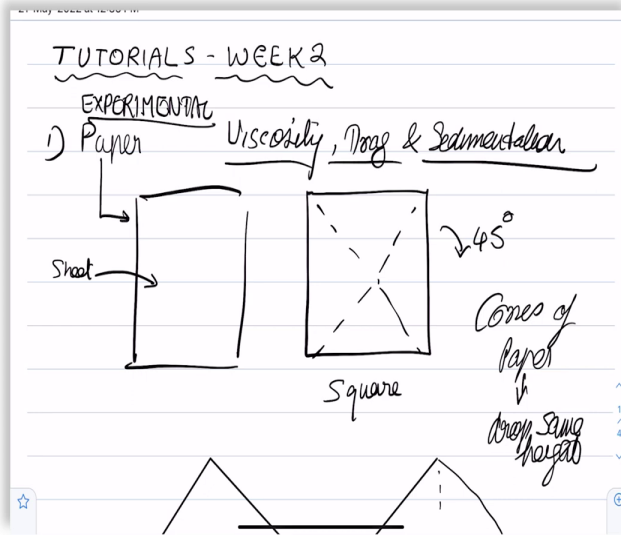 TUTORIALS - WEEK 2
EXPERIMENTAL
1) Paper
Viscosity, Drag & Sedimentation
Sheet
45°
Square
Cones of
Paper
drop same
height